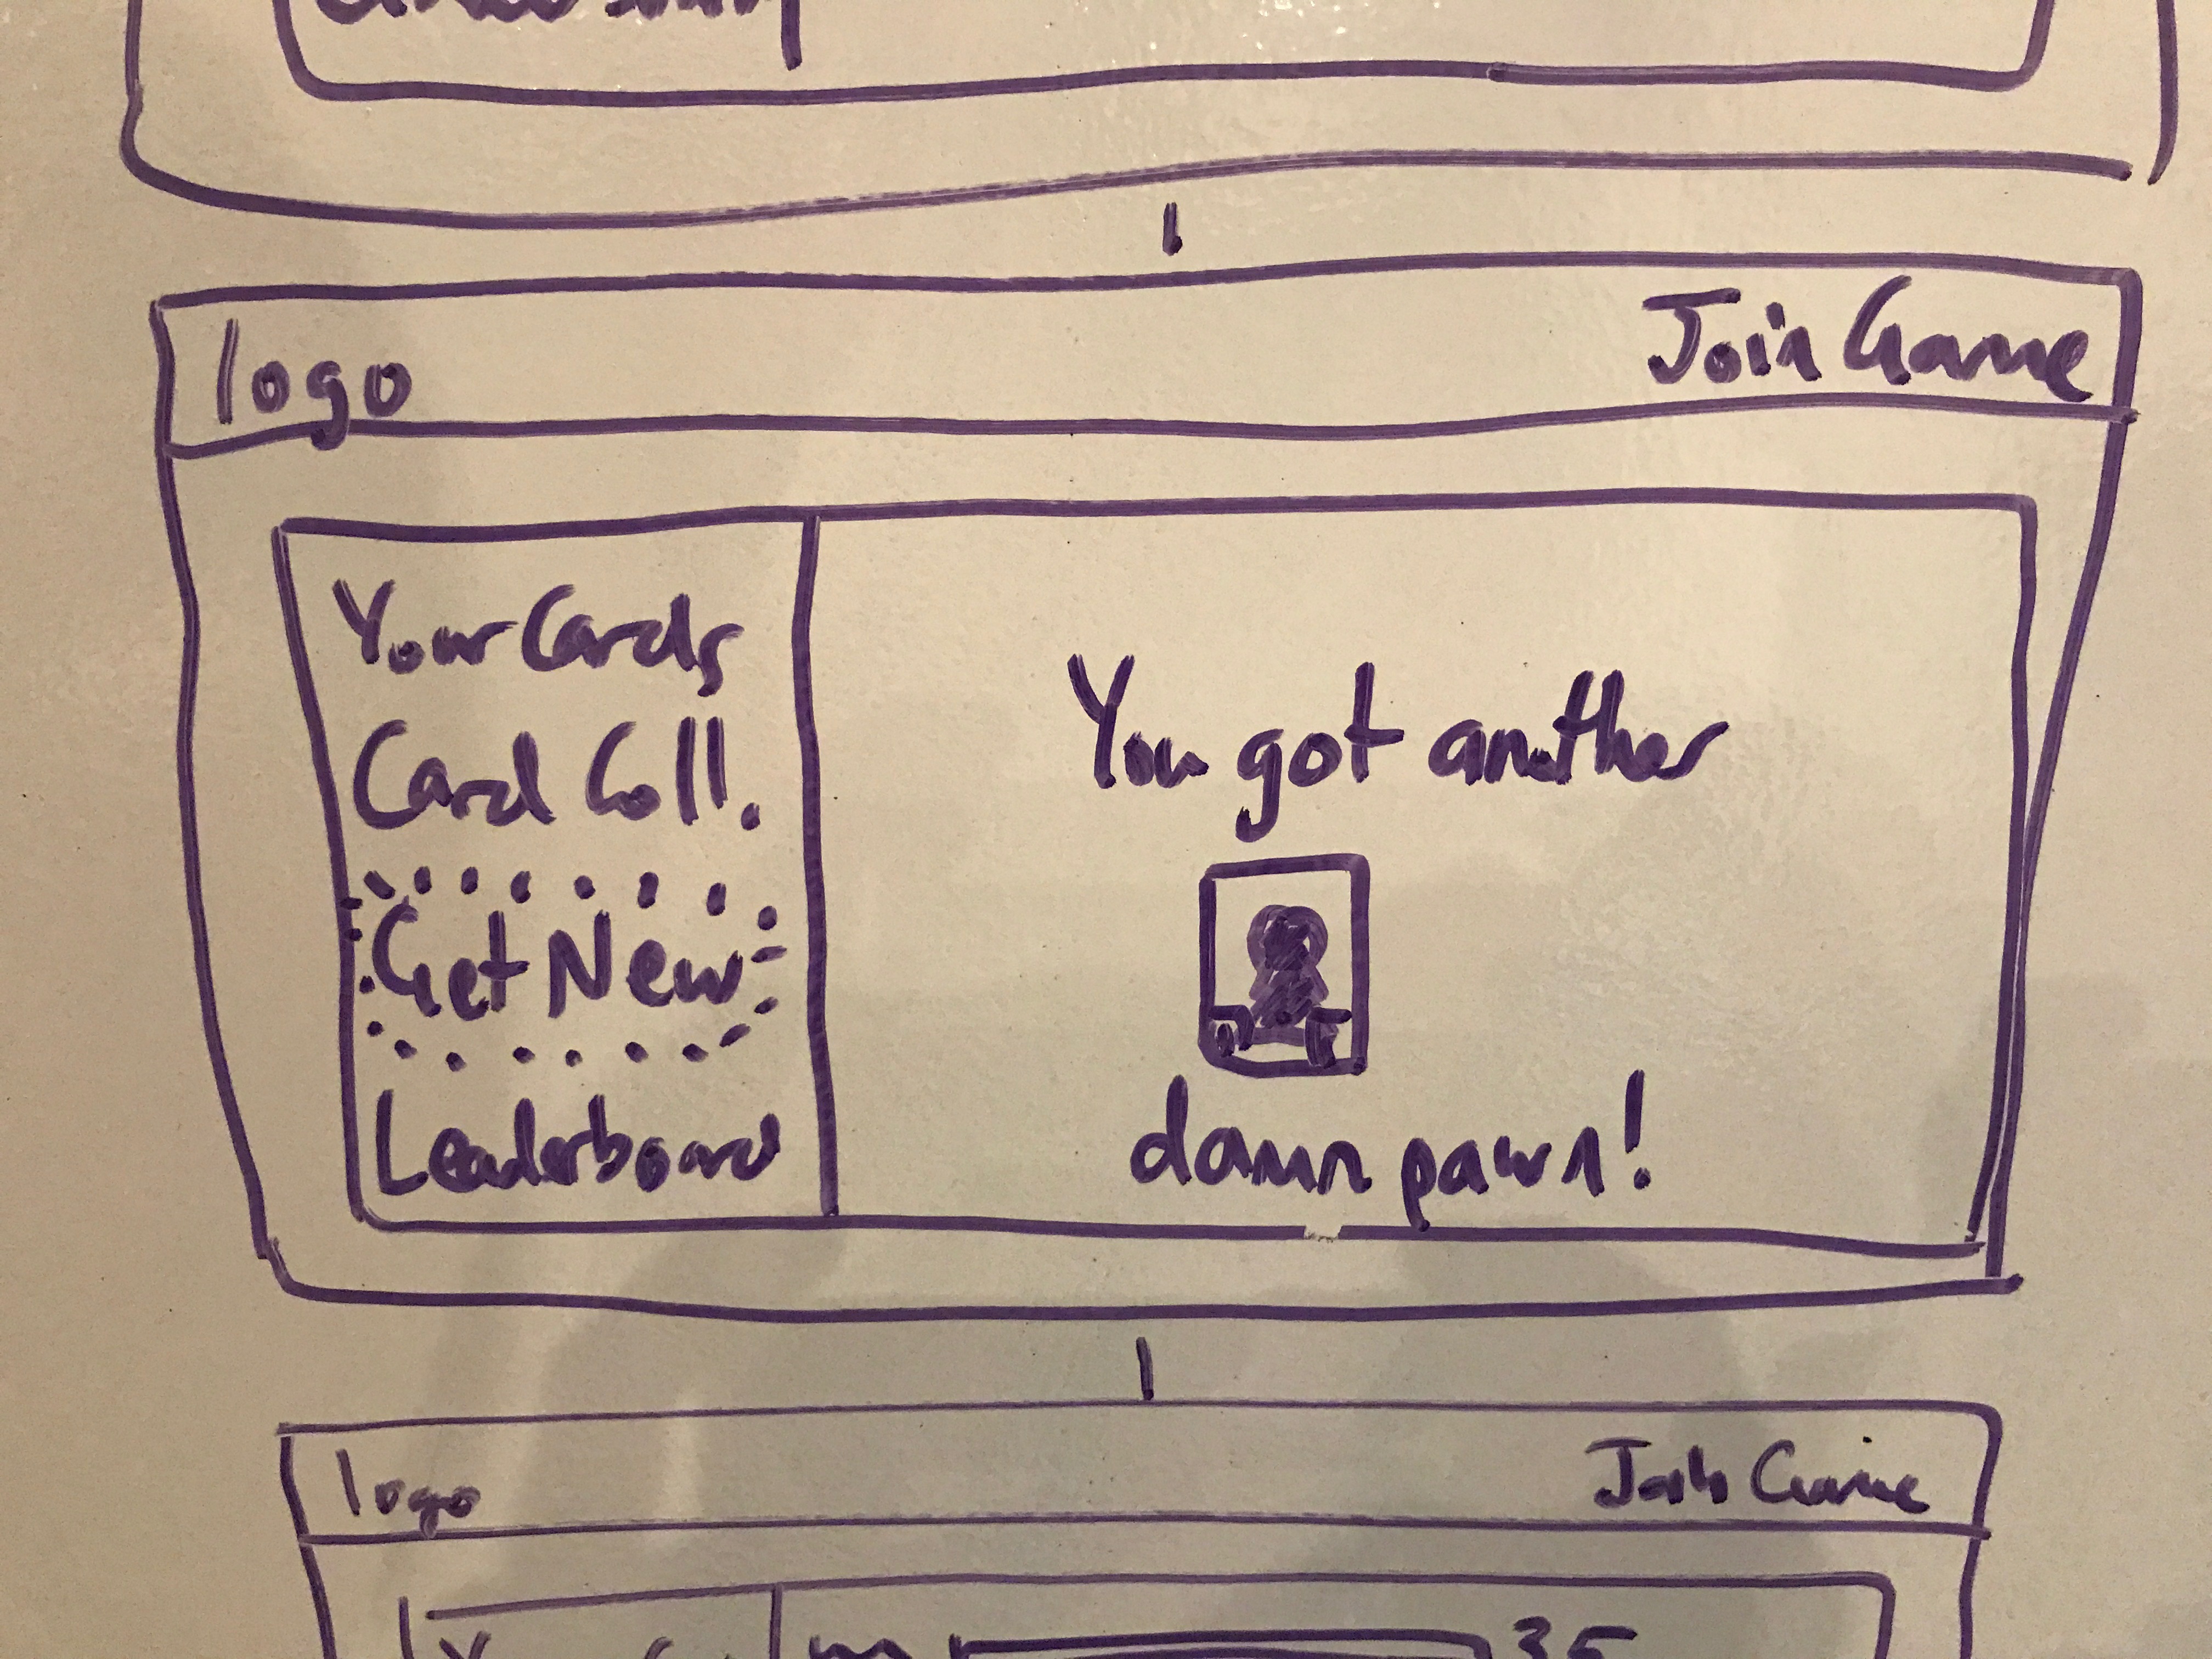 logo
Join Game
Your Cards
Card Coll.
Get New
Leaderboard
You got another
damn pawn!
logo
Join Game
35